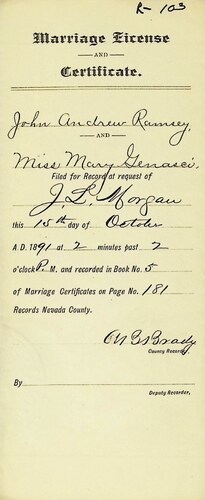 R- 103
Marriage License
AND
Certificate.
John Andrew Ramsey,
AND
Miss Mary Genasci,
Filed for Record at request of
J. L. Morgan
this 15th day of October
A.D. 1891 at 2 minutes past 2
o'clock P. M. and recorded in Book No. 5
of Marriage Certificates on Page No. 181
Records Nevada County.
Brady
County Recorder
By
Deputy Recorder.